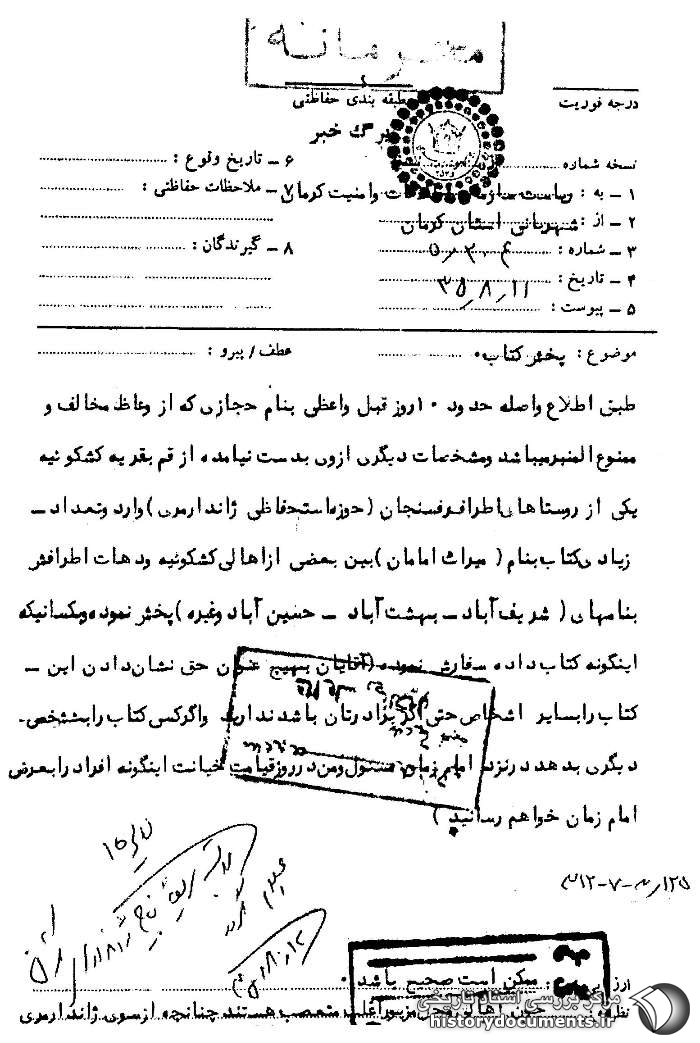 محرمانه
درجه فوریت
طبقه بندی حفاظتی
برگ خبر
نسخه شماره
۶ – تاریخ وقوع :
۱ – به : ریاست سازمان اطلاعات وامنیت کرمان
۷ – ملاحظات حفاظتی :
۲ – از : شهربانی استان کرمان
۳ – شماره :
۸ – گیرندگان :
۴ – تاریخ : ۳۵٫۸٫۱۱
۵ – پیوست :
موضوع : پخش کتاب.
عطف / پیرو :
طبق اطلاع واصله حدود ۱۰ روز قبل واعظی بنام حجازی که از وعاظ مخالف و
ممنوع المنبر میباشد ومشخصات دیگری ازوی بدست نیامده از قم بقریه کشکوئیه
یکی از روستاهای اطراف رفسنجان (حوزه استحفاظی ژاندارمری) وارد وتعداد –
زیادی کتاب بنام ( میراث امامان ) بین بعضی از اهالی کشکوئیه ودهات اطرافش
بنامهای ( شریف آباد – بهشت آباد – حسین آباد وغیره ) پخش نموده وبکسانیکه
اینگونه کتاب داده سفارش نموده (آقایان بهیچ عنوان حق نشان دادن این –
کتاب را بسایر اشخاص حتی اگر برادرتان باشد ندارید واگرکس کتاب را بشخص-
دیگری بدهد درنزد امام زمان مسئول ومن در روز قیامت خیانت اینگونه افراد را بعرض
امام زمان خواهم رسانید )
ممکن است صحیح باشد .
چون اهالی محل مزبور اغلب متعصب هستند چنانچه ازسوی ژاندارمری
مرکز بررسی اسناد تاریخی
historydocuments.ir